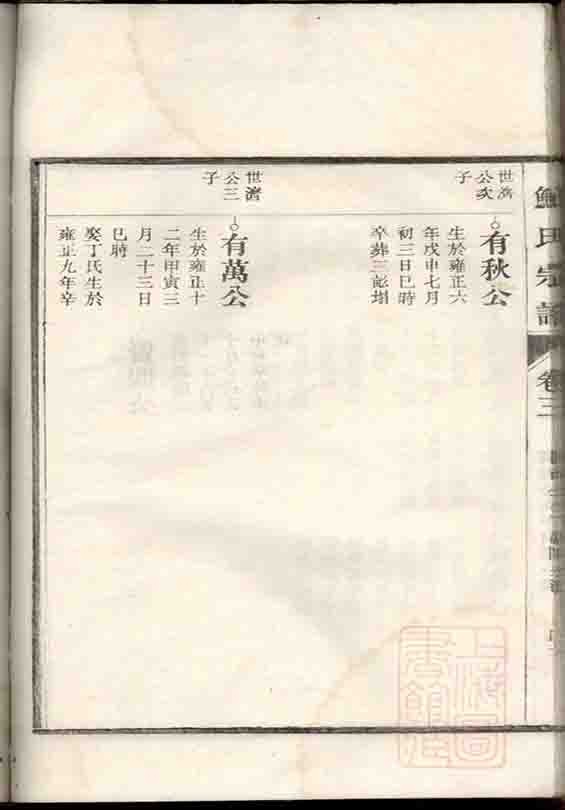 氏宗譜
卷三
世濟
公次
子
有秋公
生於雍正六
年戊申七月
初三日巳時
卒葬三
世濟
公三
子
有萬公
生於雍正十
二年甲寅三
月二十三日
巳時
娶丁氏生於
雍正九年辛
上海圖
書館藏